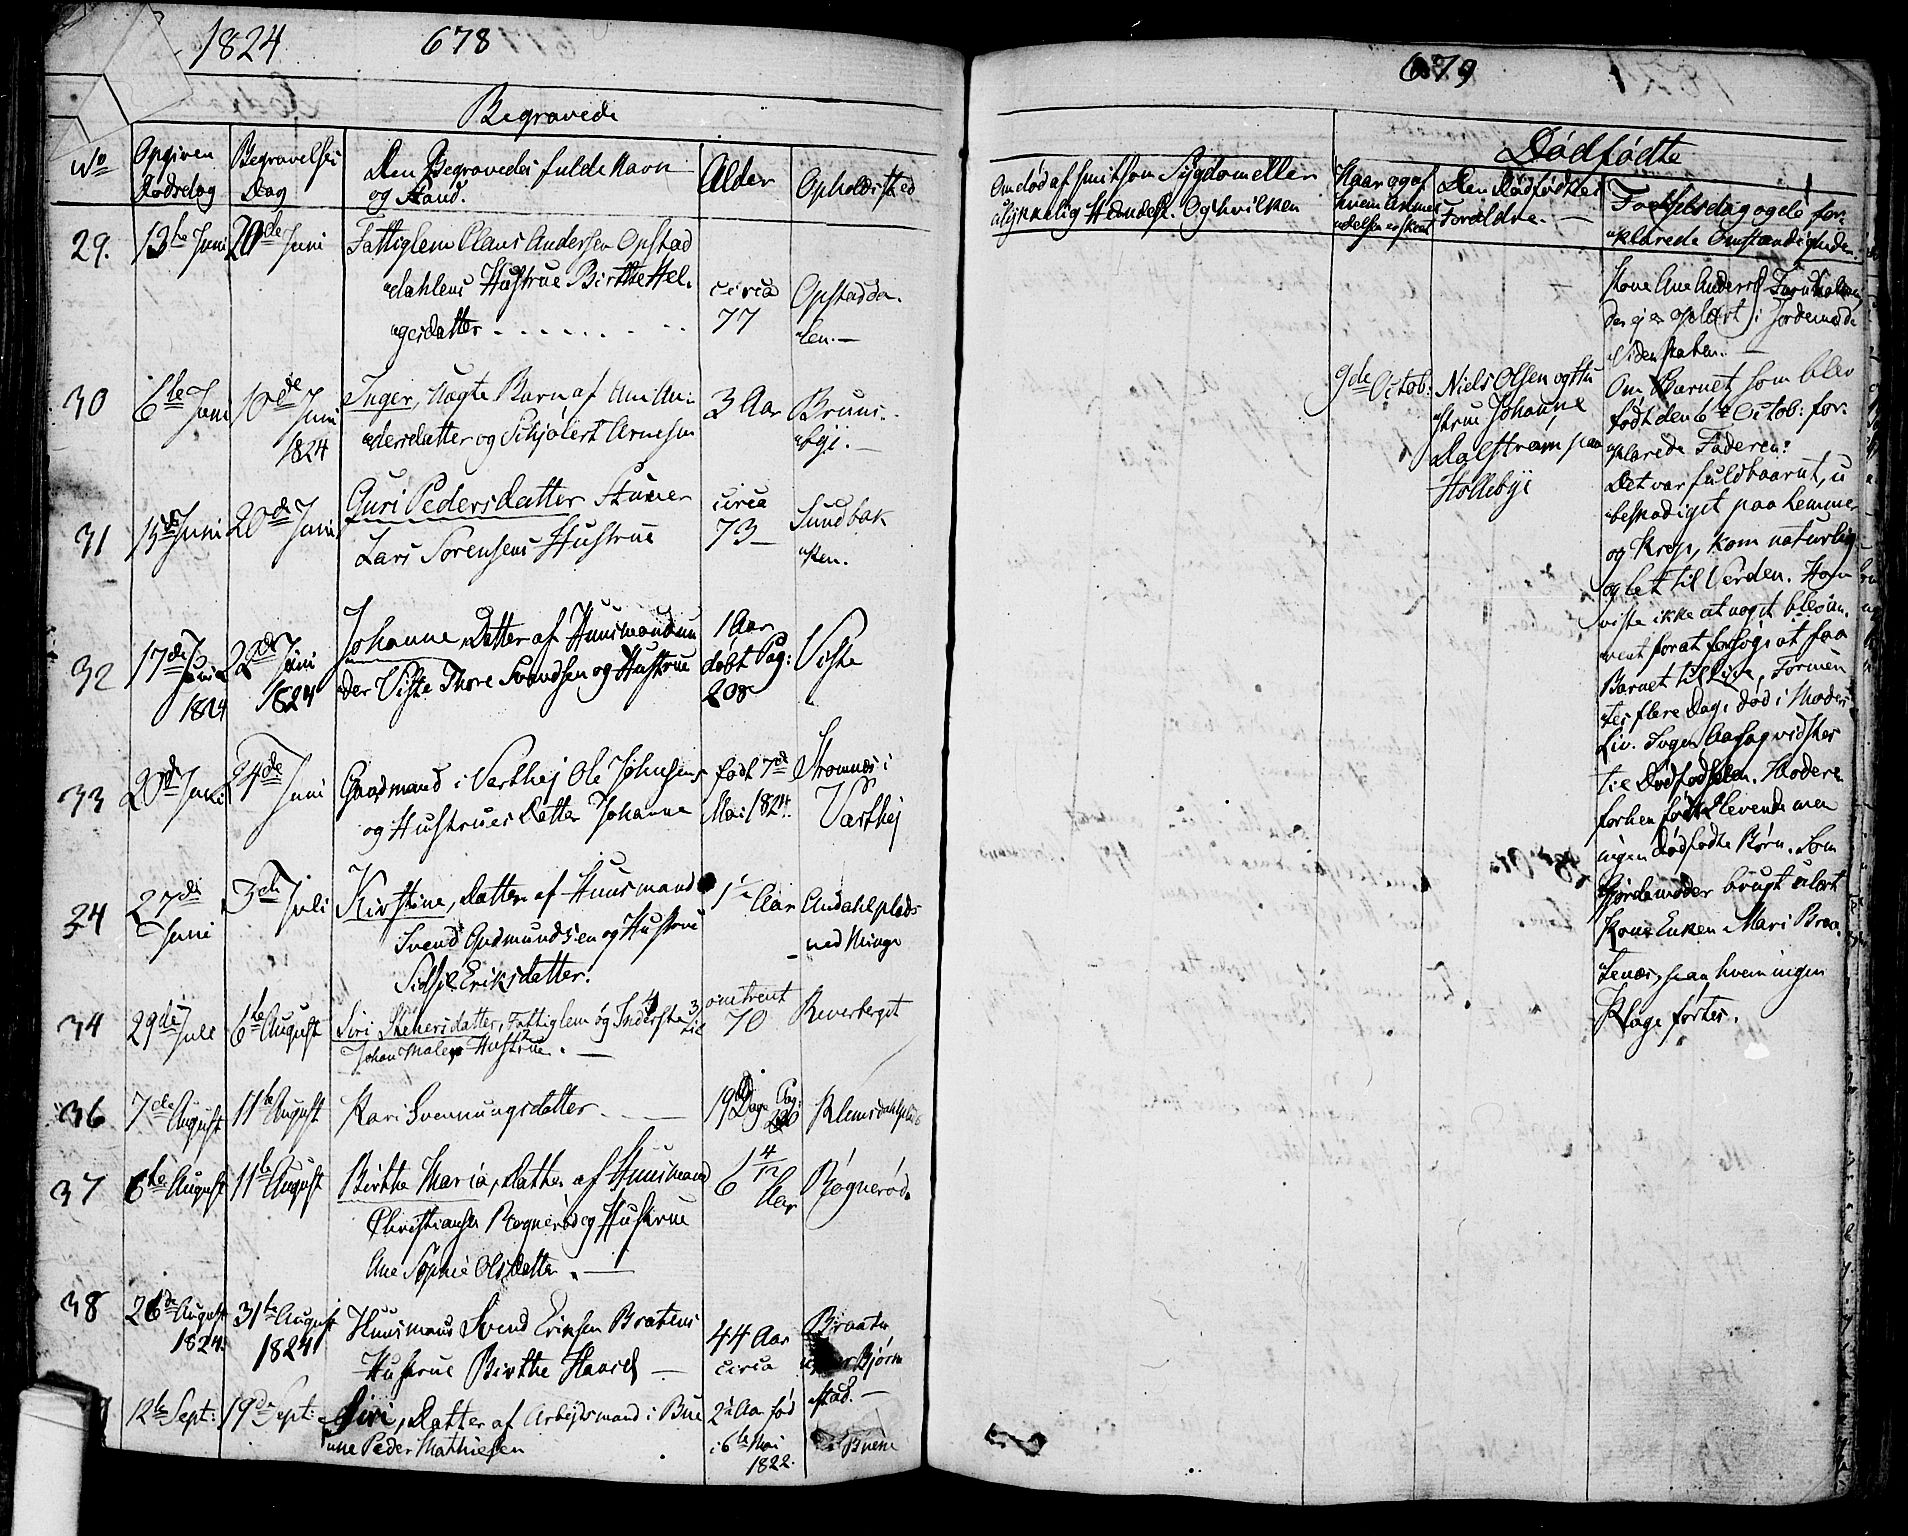 1824
678
Begravede
No
Opgiven Dødsdag
Begravelses Dag
Den Begravedes fulde Navn og Stand.
Alder
Opholdssted
29.
13te Juni
20de Juni
Fattiglem Claus Andersen Opstad
dahlens Hustrue Birthe Hel-
gesdatter
circa
77
Opstadda-
len.
30
6te Juni
10de Juni
1824
Inger, uægte Barn af Ane An-
dersdatter og Schjølert Arnesen
3 Aar
Bruns-
bye.
31
15de Juni
20de Juni
Guri Pedersdatter
Lars Sørensens Hustrue
circa
73
Sundbak
ken.
32
17de Juni
1824
1824
Johanne, Datter af Huusmand un
der Viste Thore Svendsen og Hustrue
1 Aar
døbt Pag:
208
Viste
33
Juni
24de Juni
Gaardmand i Varthej Ole Johnsens
og Hustrues Datter Johanne
født 7de
Mai 1824.
Strømnæs i
Varthej
34
27de
Juni
3de Juli
Kirstine, Datter af Huusmand
Svend Gudmundsen og Hustrue
Sidsel Eriksdatter.
Aar
Andahlplads
ved Minge
34
29de Juli
6te August
Siri
Fattiglem og Inderste
Johan Malers Hustrue.
omtrent
70
Reverberget
36
7de August
11te August
Kari Svennungsdatter
19 Dage
Klemsdahlplads
37
6te August
11te August
Birthe Maria, Datter af Huusmand
Christiansen Røgnerød og Hustrue
Ane Sophie Olsdatter.
6 4/12
Aar
Røgnerød.
38
26de August
1824.
31te August
1824
Huusmand Svend Eriksen Bratens
Hustrue Birthe Hansd
44 Aar
circa
Braaten
Bjørn
stad.
12te Sept:
19de Sept:
Siri, Datter af Arbejdsmand i Bue
nne Peder Mathiesen
2 Aar fød
6te Mai
1822.
Buene
679
Om død af smitsom Sygdom eller
ulykkelig Hændelse. Og hvilken
Dødfødte
Naar og af
hvem Anmel
delsen er skeet
Den Dødfødtes
Forældre.
Fødselsdag og de for-
klarede Omstændigheder.
Kone Ane Andersd
der ej er oplært i Jordemoder
Videnskaben.
9de Octob:
Niels Olsen og Hu
strue Johanne
Dalstrøm paa
Hollebye
Om Barnet som blev
født den 6te Octob: for-
klarede Faderen:
Det var fuldbaarent, u
beskadiget paa Lemmer
og Krop, kom naturlig
og let til Verden. Han
viste ikke at noget blev an-
vent for at forsøge at faa
Barnet til Live, Formen
tes flere Dage død i Moders
Liv. Ingen Aarsag vidstes
til Dødfødselen. Moderen
forhen født levende men
ingen dødfødte Børn. Som
Gjordemoder brugt ulært
Kone Enken Mari Braa-
tenæs, paa hvem ingen
Klage førtes.